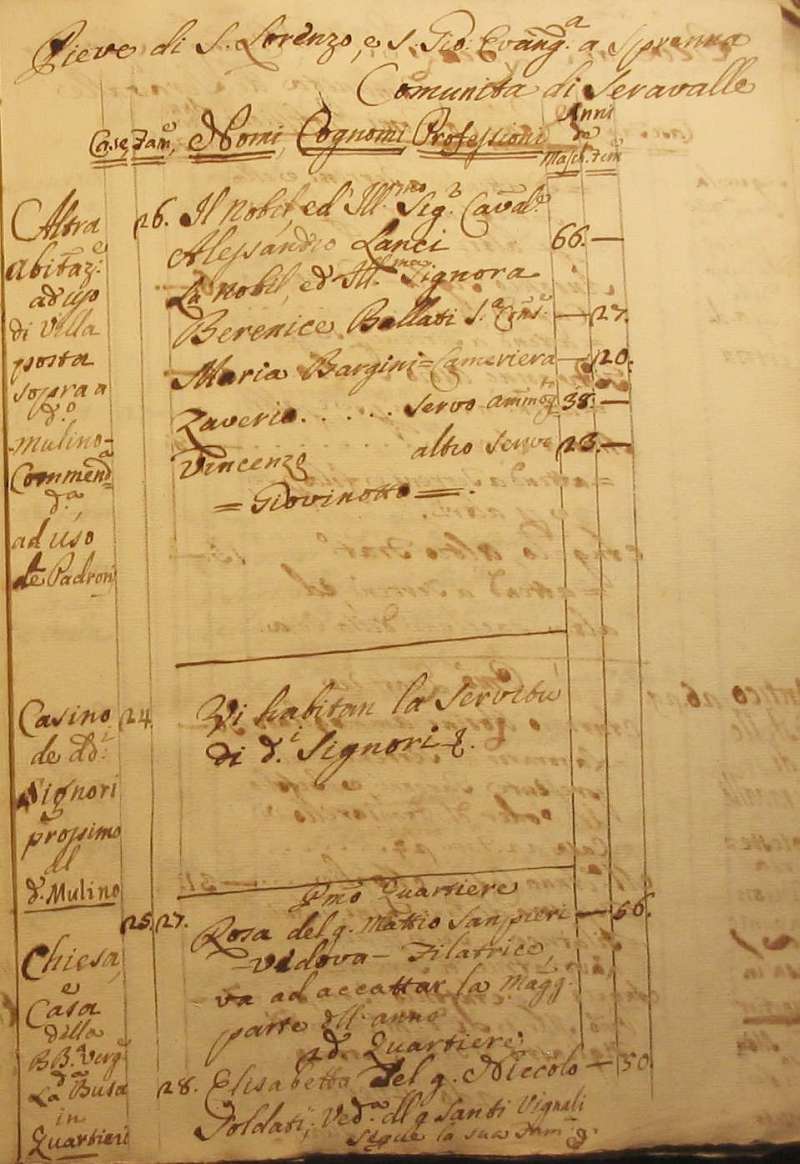 Pieve di S. Lorenzo, e S. Gio: Evang.a a
Comunita di Seravalle
Case, Fam.e, Nomi, Cognomi Professioni Anni
de
Masch. Fem.e
Altra 26. Il Nobil, ed Ill.mo Sig.r Caval.e
Alessandro Lanci 66. —
abitaz.e
La Nobil, ed Ill.ma Signora
ad uso
di Villa Berenice Ballati — 27.
posta Maria Bargini = Cameriera — 20.
sopra a
d.o Zaverio. . . . . . servo 38. —
mulino Vincenzo altro servo 23. —
= Giovinotto =.
d.a
ad uso
de Padroni
Casino 24. Vi habitan la Servitù
de dd.i di d.i Signori
Signori
prossimo
al
d.o Mulino
P.mo Quartiere
25. 27. Rosa del q. Mattio Sanpieri — 56.
Chiesa, — Vedova — Filatrice,
e va ad accattar la Magg.
Casa parte dell'anno
della 2.do Quartiere
BB.a Verg.e
La Busa 28. Elisabetta del q. Niccolo — 50
in Soldati, Ved.a dll q Santi Vignali
Quartieri Segue la sua Fam.